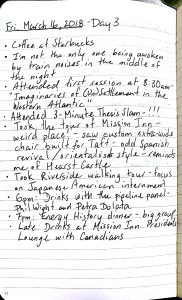 Fri. March 16, 2018 - Day 3
• Coffee at Starbucks
• I'm not the only one being awoken
by train noises in the middle of
the night
• Attended first session at 8:30am -
"Imaginaries of (Un)Settlement in the
Western Atlantic"
• Attended 3-Minute Thesis Slam - !!!
• Took the tour of Mission Inn -
weird place - saw custom extra-wide
chair built for Taft - odd Spanish
revival / orientalist style - reminds
me of Hearst Castle
• Took Riverside walking tour - focus
on Japanese American internment
• 6pm: Drinks with the pipeline panel -
Phil Wight and Petra Dolata
• 7pm: Energy History dinner - big group
• Late Drinks at Mission Inn Presidents
Lounge with Canadians